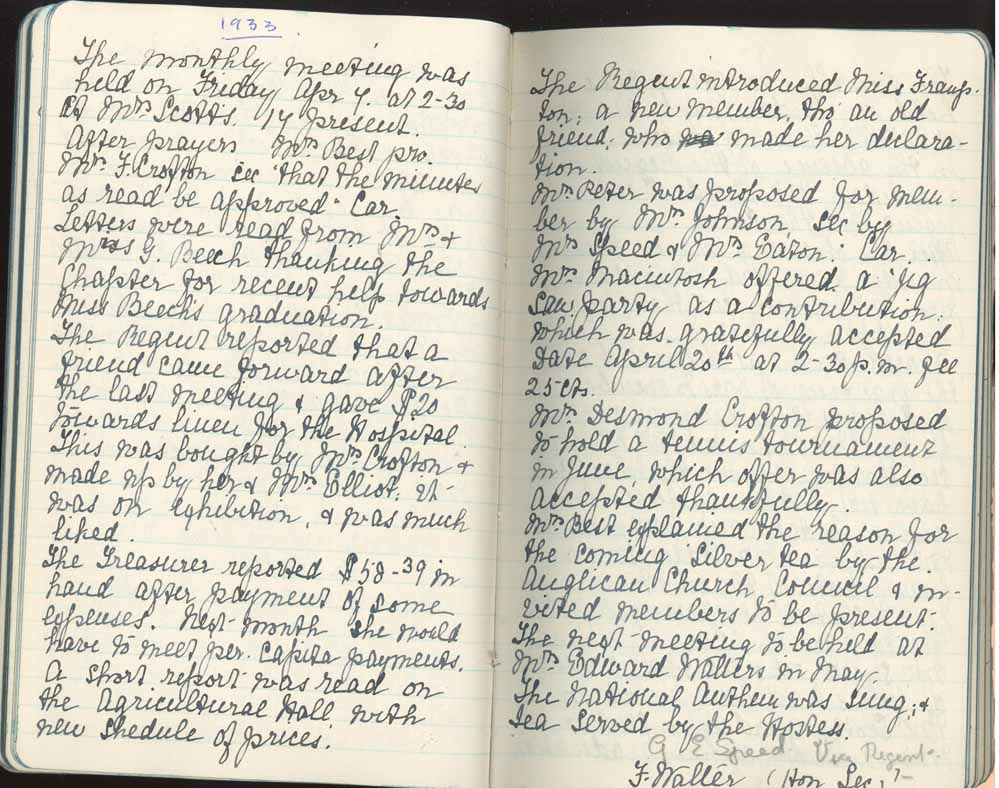 1933.
The monthly meeting was
held on Friday Apr 7. at 2-30
at Mrs Scott's. 14 present.
After prayers Mrs Best pro.
Mrs F. Crofton sec "that the minutes
as read be approved" Car.
Letters were read from Mrs &
Miss G. Beech thanking the
Chapter for recent help towards
Miss Beech's graduation.
The Regent reported that a
friend came forward after
the last meeting & gave $20
towards linen for the Hospital.
This was bought by Mrs Crofton &
made up by her & Mrs Elliot, it
was on exhibition, & was much
liked.
The Treasurer reported $58-39 in
hand after payment of some
expenses. Next month she would
have to meet per. capita payments.
A short report was read on
the Agricultural Hall, with
new shedule of prices.
The Regent introduced Miss Framp-
ton, a new member, tho' an old
friend, who made her declara-
tion.
Mrs Peter was proposed for mem-
ber by Mrs Johnson, sec by
Mrs Speed & Mrs Eaton. Car.
Mrs Macintosh offered a "jig
saw party as a contribution.
which was gratefully accepted
Date April 20th at 2-30 p.m. fee
25 cts.
Mrs Desmond Crofton proposed
to hold a tennis tournament
in June, which offer was also
accepted thankfully.
Mrs Best explained the reason for
the coming Silver tea by the
Anglican Church Council & in-
vited members to be present.
The next meeting to be held at
Mrs Edward Walters in May.
The National Anthem was sung, &
tea served by the Hostess.
G E Speed Vice Regent-
F. Walter (Hon Sec,